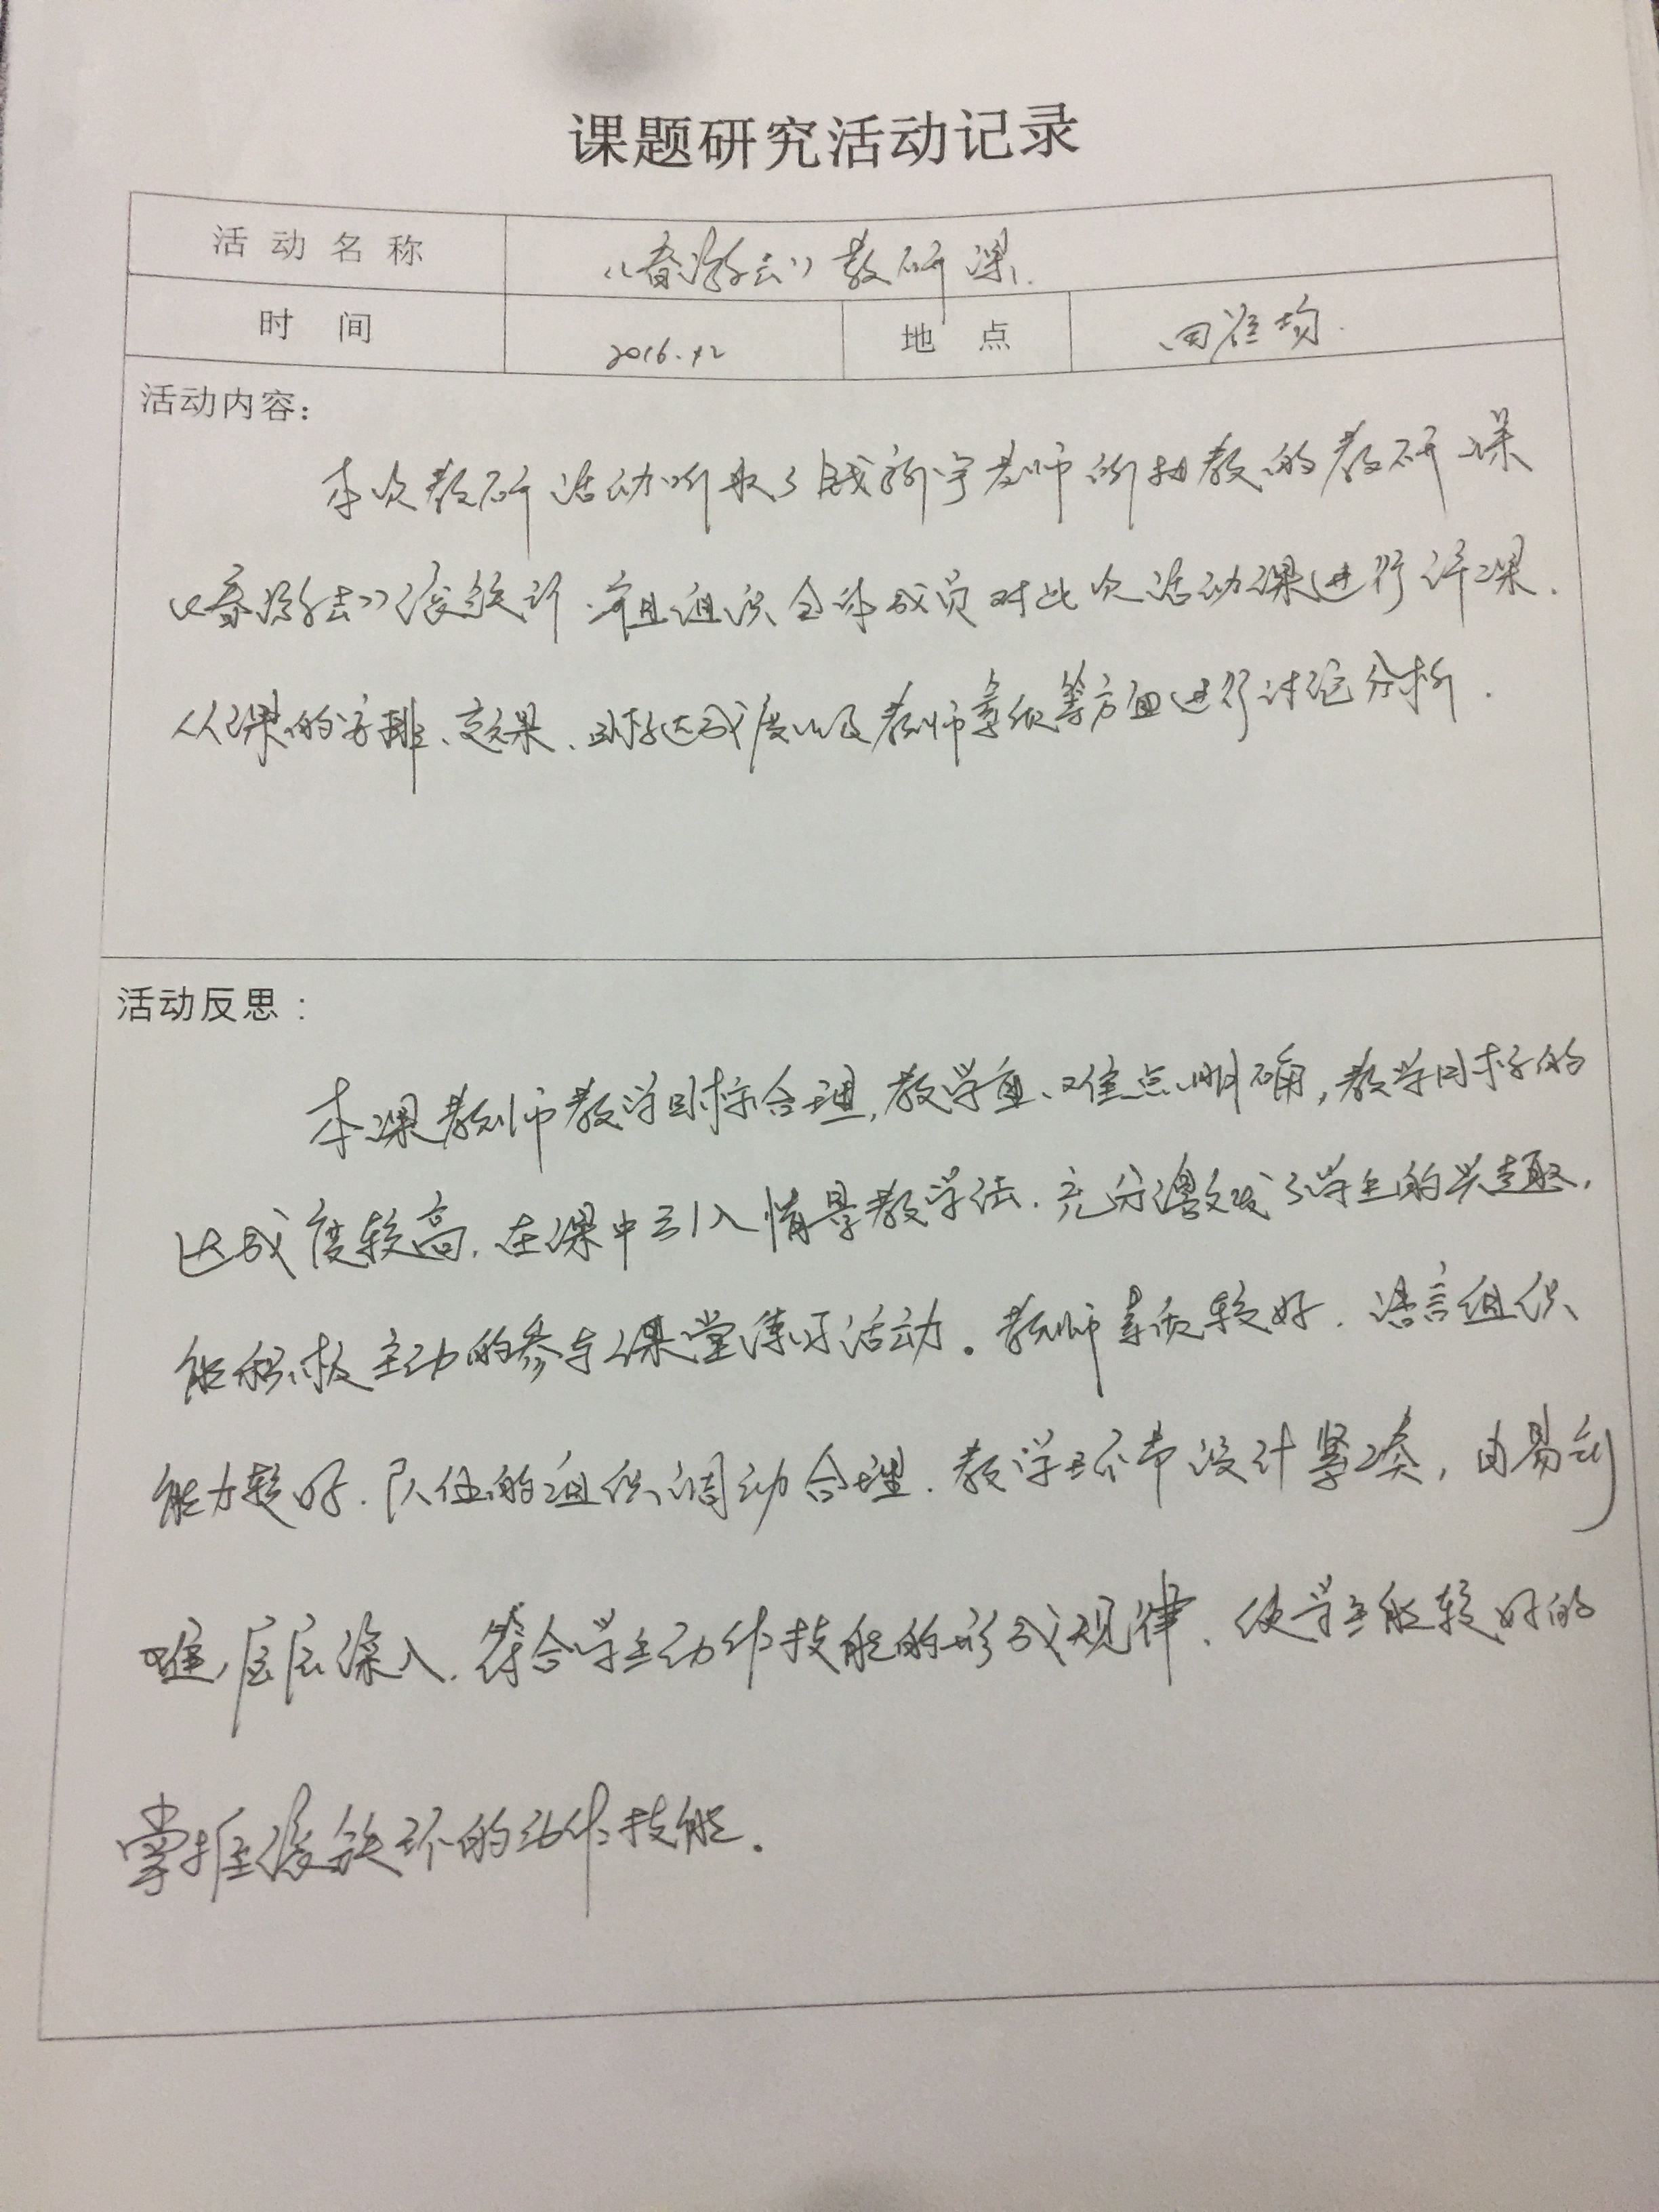 课题研究活动记录
活动名称 《春游去》教研课.
时间 2016.12 地点 田径场.
活动内容：
本次教研活动听取了钱新宇老师所执教的教研课
《春游去》滚铁环.并且组织全体成员对此次活动课进行评课.
从课的安排、效果、目标达成度以及教师素质等方面进行讨论分析.
活动反思：
本课教师教学目标合理,教学重、难点明确,教学目标的
达成度较高.在课中引入情景教学法.充分激发了学生的兴趣.
能积极主动的参与课堂练习活动。教师素质较好.语言组织
能力较好.队伍的组织调动合理.教学环节设计紧凑,由易到
难,层层深入.符合学生动作技能的形成规律.使学生能较好的
掌握滚铁环的动作技能.